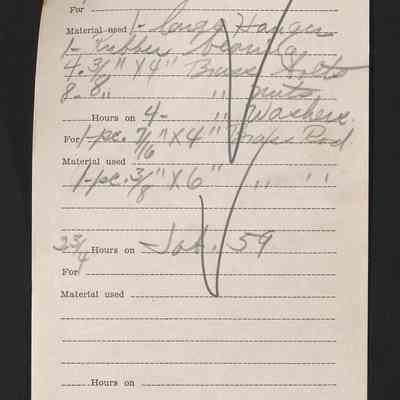 For
Material used 1- Cargo Hanger
1- Rubber bearing
4. 3/8" X 4" Brass Bolts
8- 8" " nuts.
Hours on 4- " Washers.
For 1-pc. 7/16" X 4" Brass Rod.
Material used
1-pc. 3/8" X 6" " "
2 3/4 Hours on - Job. 59
For
Material used
Hours on